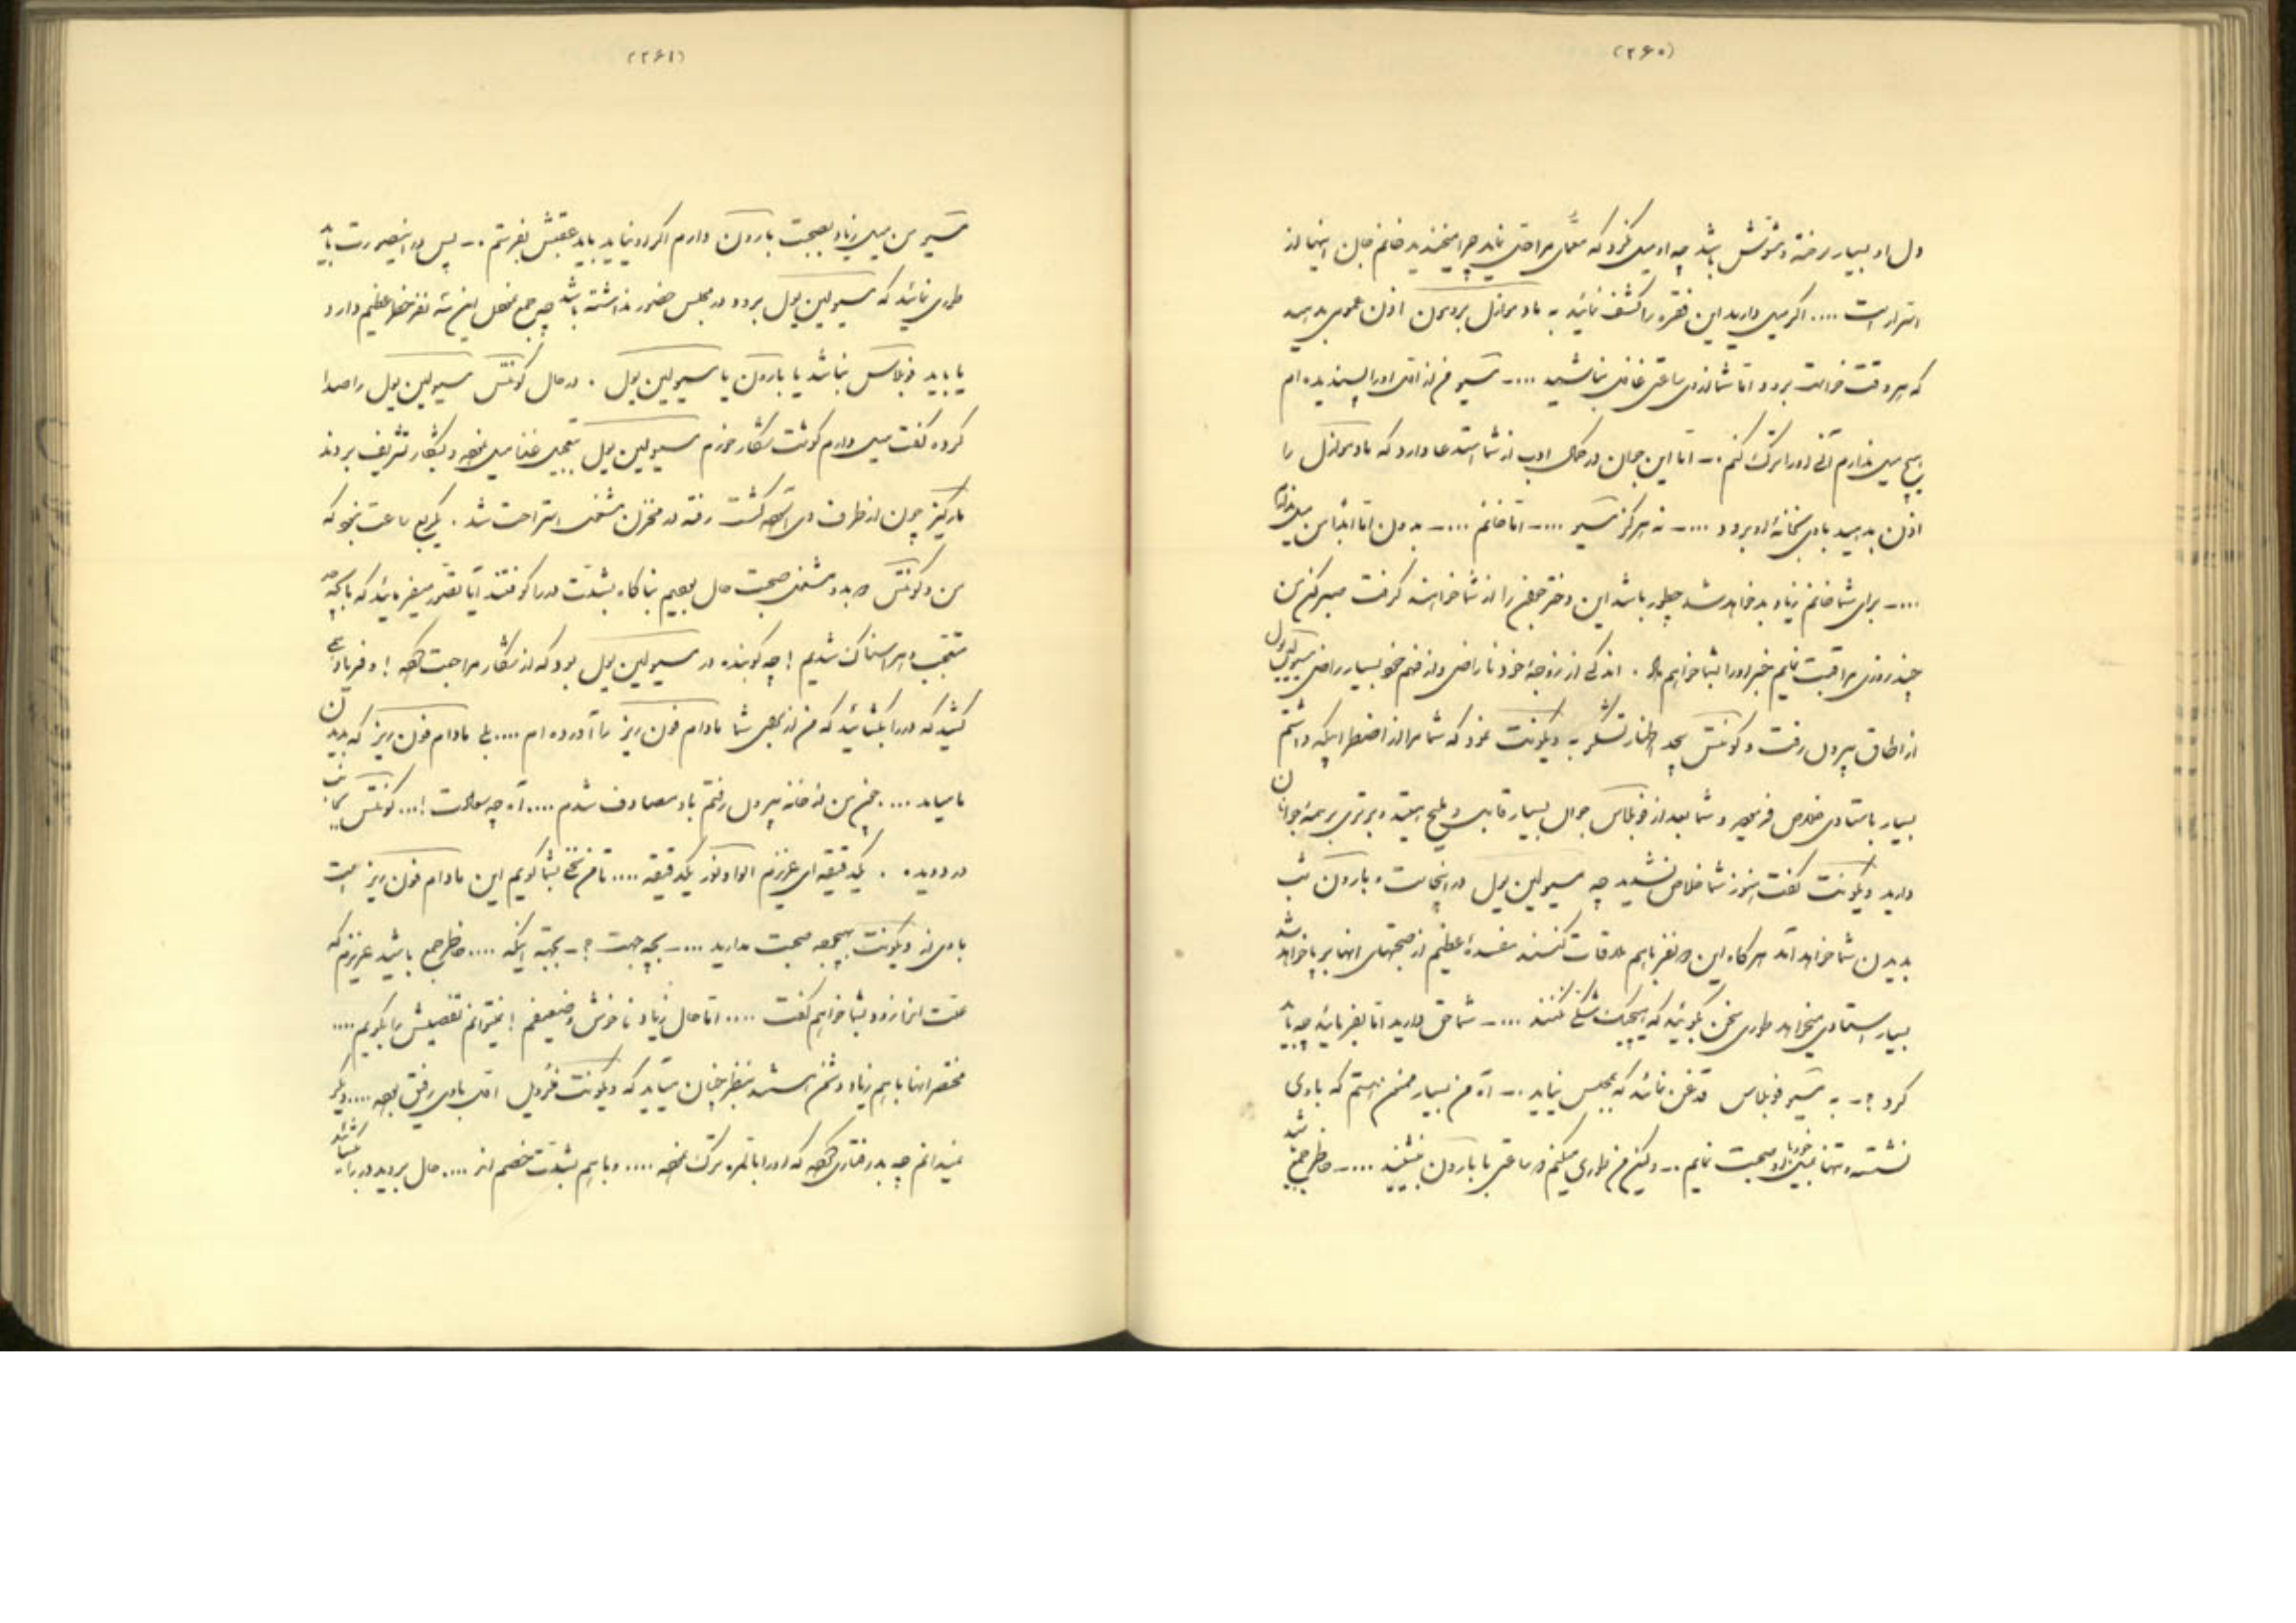 (۲۶۰)
دل او بسیار رخنه و مشوش باشد چه او میل نکرد که معمای مرا حل نماید چرا میخندید خانم جان اینها از
اسرار است .... اگر میل دارید این فقره را کشف نمائید به مادموازل بردمون اذن عمومی بدهید
که هر وقت خواست برود اما شما از وی ساعتی غافل نباشید .... ـ مسیو من از اول او را پسندیده ام
هیچ میل ندارم آنی او را ترک کنم ـ اما این جوان در کمال ادب از شما استدعا دارد که مادموازل را
اذن بدهید با وی بخانه او برود .... ـ نه هرگز مسیو .... ـ اما خانم .... ـ بدون اما ابدا من میل ندارم
.... ـ برای شما خانم زیاد بد خواهد شد چطور باشد این دختر را از شما خواهند گرفت صبر کن من
چند روزی مراقبت نمایم خبر او را بشما خواهم داد . اندکی از زوجه خود ناراضی و از خانم بسیار راضی مسیو لین پول
از اطاق بیرون رفت و کونتس بیحد اظهار تشکر به ویکونت نمود که شما مرا از اضطرابیکه داشتم
بسیار با استادی خلاص فرمودید و شما بعد از فوبلاس جوان بسیار قابل و ملیح هستید و برتری بر همه جوانان
دارید ویکونت گفت هنوز شما خلاص نشدید چه مسیو لین پول در اینجاست و بارون شب
بدیدن شما خواهد آمد هر گاه این دو نفر با هم ملاقات کنند مفسده عظیم از صحبتهای انها برپا خواهد شد
بسیار استادی میخواهد طوری سخن بگوئید که هیچیک شک نکنند .... ـ شما حق دارید اما بفرمائید چه باید
کرد ؟ ـ به مسیو فوبلاس قدغن نمائید که بمجلس نیاید ـ آه من بسیار ممنون هستم که با وی
نشسته و تنها با او صحبت نمایم ـ ولیکن من طوری میکنم دو ساعتی با بارون بنشینند .... ـ خاطر جمع باشید
(۲۶۱)
مسیو من میل زیاد بصحبت بارون دارم اگر او نیاید باید عقبش بفرستم ـ پس در اینصورت باید
طوری نمائید که مسیو لین پول برود و در مجلس حضور نداشته باشد چه جمع محفل این سه نفر خطر عظیم دارد
یا باید فوبلاس نباشد یا بارون یا مسیو لین پول . در حال کونتس مسیو لین پول را صدا
کرده گفت میل دارم گوشت شکار خورم مسیو لین پول بتعجیل غذا میل نموده و بشکار تشریف بردند
مارکیز چون از طرف وی آسوده گشت رفته در مخزن مشغول استراحت شد . یکربع ساعت نبود که
من و کونتس هر دو مشغول صحبت حال بودیم بناگاه بشدت در را کوفتند آیا تصور میفرمائید که تا چه حد
متعجب و هراسناک شدیم ! چه کوبنده در مسیو لین پول بود که از شکار مراجعت کرده ! و فریاد همی
کشید که در را بگشائید که من از برای شما مادام فون ریز را آورده ام .... بلی مادام فون ریز که بدیدن
ما میاید .... چون من از خانه بیرون رفتم با او مصادف شدم .... آه چه سعادت !... کونتس بجانب
در دویده . یکدقیقه ای عزیزم الوانور یکدقیقه .... تا من سخنی بشما گویم این مادام فون ریز است
با وی از ویکونت بهیچوجه صحبت مدارید .... ـ بچه جهت ؟ ـ بجهة اینکه .... خاطر جمع باشید عزیزم که
علت انرا زود بشما خواهم گفت .... اما حال زیاد ناخوش و ضعیفم ! نمیتوانم تفصیلش را بگویم ....
مختصر انها با هم زیاد دشمن هستند بنظر چنان میاید که ویکونت فلورویل اول با وی رفیق بوده .... دیگر
نمیدانم چه بد رفتاری کرده که او را بالمره ترک نموده .... و با هم بشدت خصم اند .... حال بروید در را بگشائید